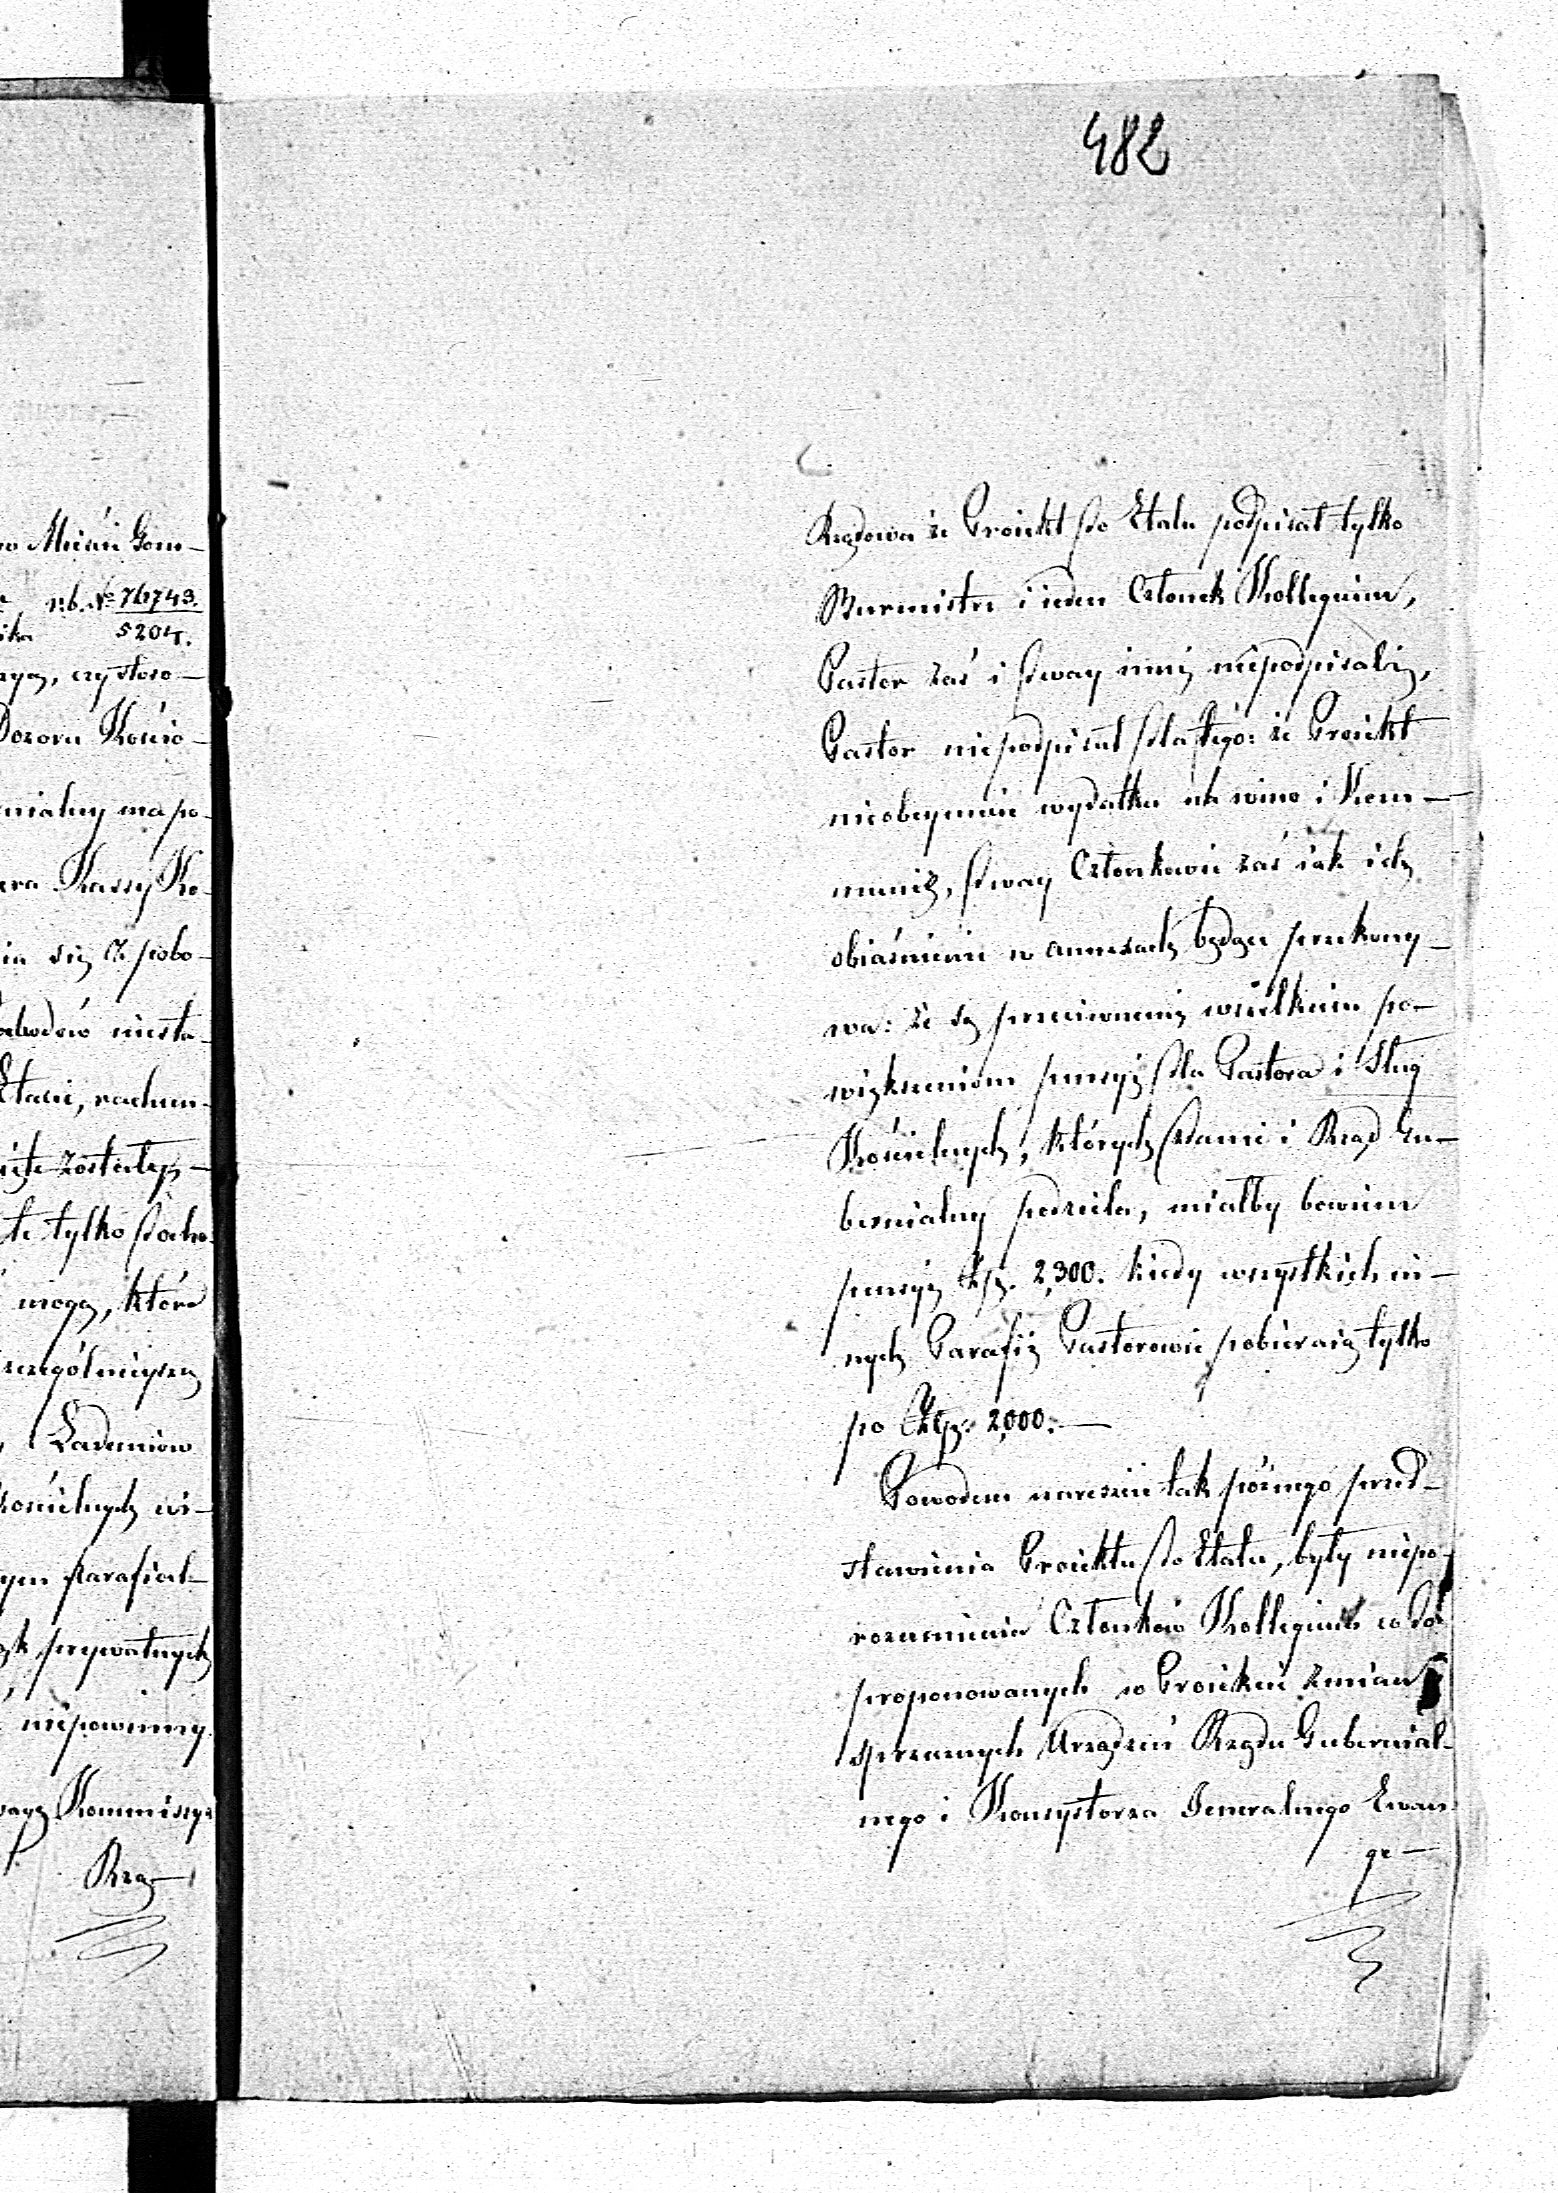 482
Rządowa że Proiekt do Etatu podpisał tylko
Burmistrz i ieden Członek Kollegium,
Pastor zaś i dway inni niepodpisali,
Pastor niepodpisał dla tego: że Proiekt
nieobeymuie wydatku na wino i Kom-
munię, dway Członkowie zaś iak ich
obiaśnienie w annexach będące przekony-
wa: że są przeciwnemi wszelkim po-
większeniom pensyi dla Pastora i Sług
Kościelnych, których zdanie i Rząd Gu-
bernialny podziela, miałby bowiem
pensyi Złp. 2,300. kiedy wszystkich in-
nych Parafii Pastorowie pobieraią tylko
po Złp. 2,000.—
Powodem nareszcie tak późnego przed-
stawienia Proiektu do Etatu, były niepo-
rozumienia Członków Kollegium co do
proponowanych w Proiekcie zmian
sprzecznych Urządzeń Rządu Gubernial-
nego i Konsystorza Jeneralnego Ewan-
ge-
Mieści Gom-
No 76743.
5204.
czysto
Dozoru Kościo-
nialny ma po-
Kassy Ko-
się z pobo-
Etacie, rachun-
zostały
te tylko docho-
mogą, które
szczególnieysze
Kościelnych
Parafial-
prywatnych
niepowinny.
Kommissya
Rzą-